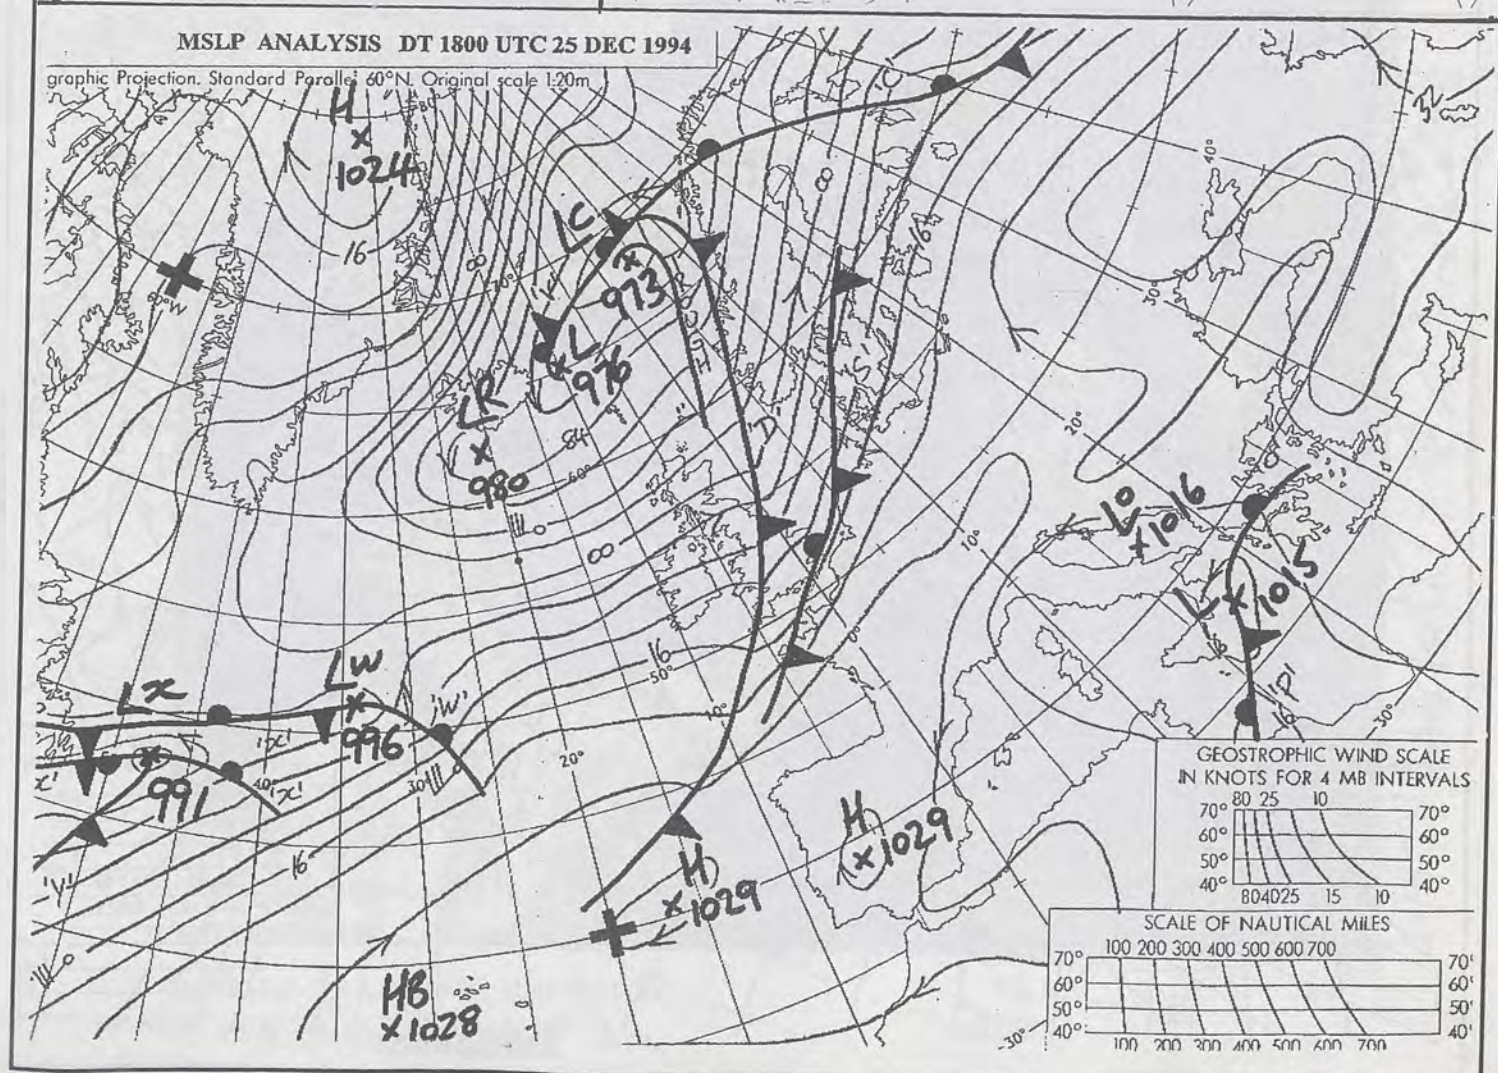 MSLP ANALYSIS DT 1800 UTC 25 DEC 1994
graphic Projection. Standard Parallel 60°N. Original scale 1:20m
H
1024
16
LC
973
L
976
LR
980
84
60°
70°
60°W
40°
30°
20°
10°
0°
'C'
'D'
16
LO
1016
L
1015
16
'P'
16
30°
16
50°
10°
LX
LW
996
'W'
'X'
991
40°
'X'
30°
20°
X'
16
'Y'
H
1029
H
1029
HB
1028
GEOSTROPHIC WIND SCALE
IN KNOTS FOR 4 MB INTERVALS
80 25 10
70° 70°
60° 60°
50° 50°
40° 40°
80 40 25 15 10
SCALE OF NAUTICAL MILES
100 200 300 400 500 600 700
70° 70°
60° 60°
50° 50°
40° 40°
100 200 300 400 500 600 700
-30°